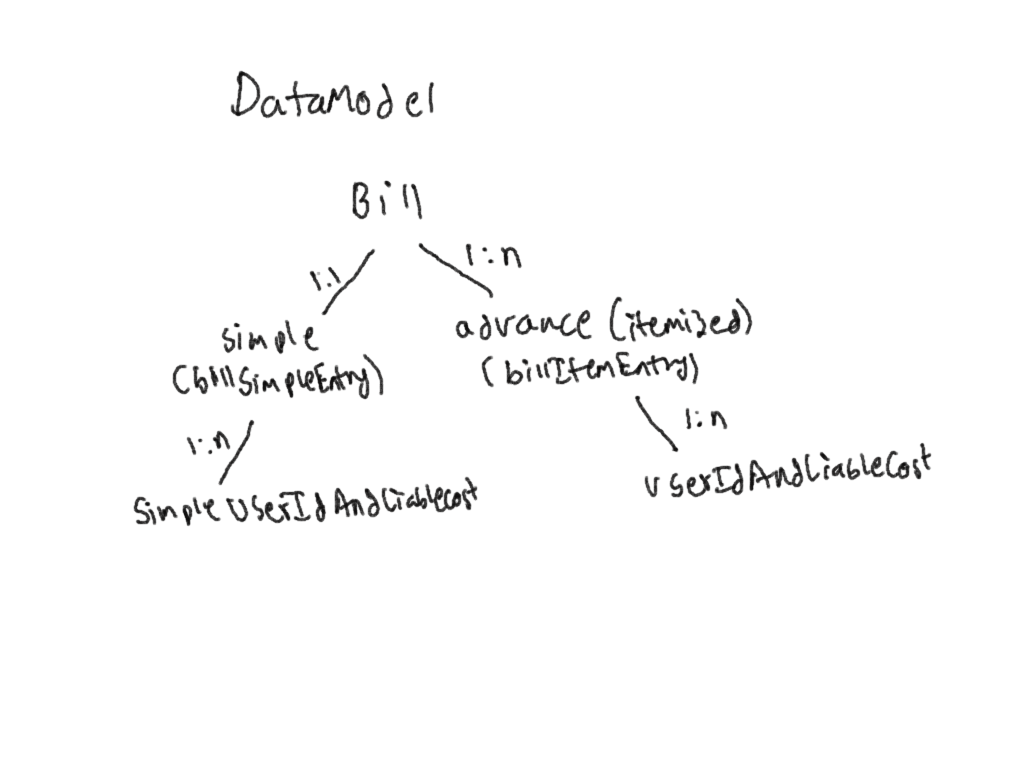 DataModel
Bill
1:1
1:n
simple
(billSimpleEntry)
advance (itemized)
(billItemEntry)
1:n
1:n
SimpleUserIdAndLiableCost
UserIdAndLiableCost